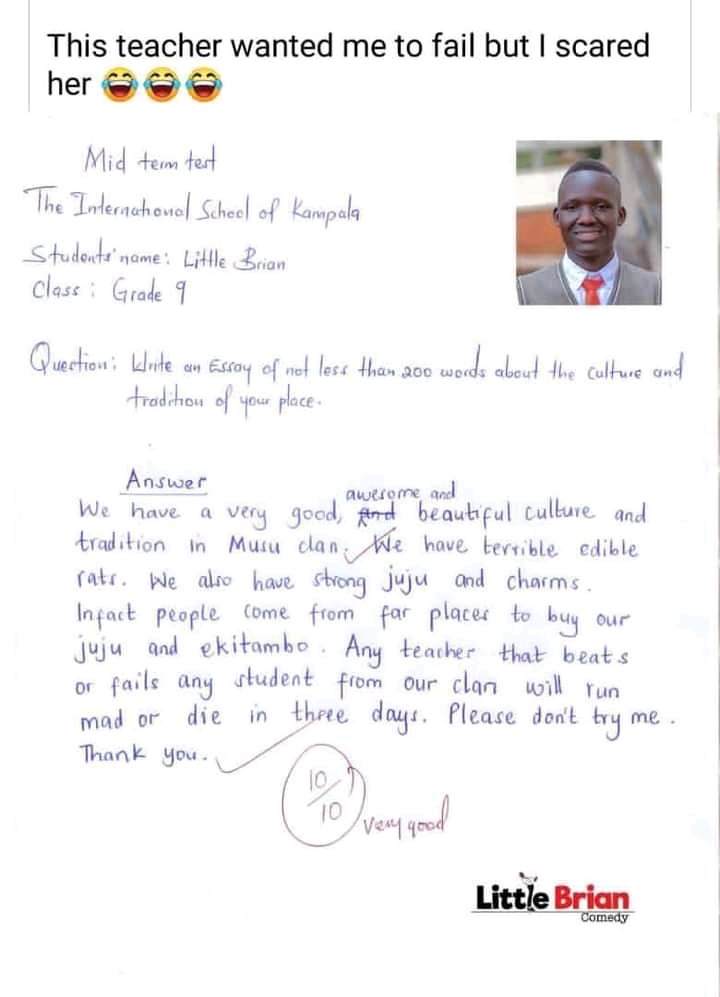 This teacher wanted me to fail but I scared
her 😂😂😂
Mid term test
The International School of Kampala
Students' name: Little Brian
Class: Grade 9
Question: Write an Essay of not less than 200 words about the culture and
tradition of your place.
Answer
We have a very good, and awesome and beautiful culture and
tradition in Musu clan. We have terrible edible
rats. We also have strong juju and charms.
Infact people come from far places to buy our
juju and ekitambo. Any teacher that beats
or fails any student from our clan will run
mad or die in three days. Please don't try me.
Thank you.
10
10
very good
Little Brian
Comedy